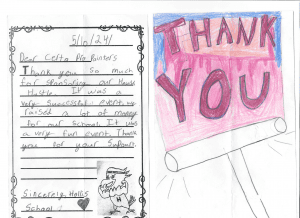 5/10/24
Dear Celta
Thank you so much
for sponsoring our
Hustle. It was a
very successful event. We
raised a lot of money
for our school. It was
a very fun event. Thank
you for your support.
Sincerely, Hollis
School
H
THANK
YOU